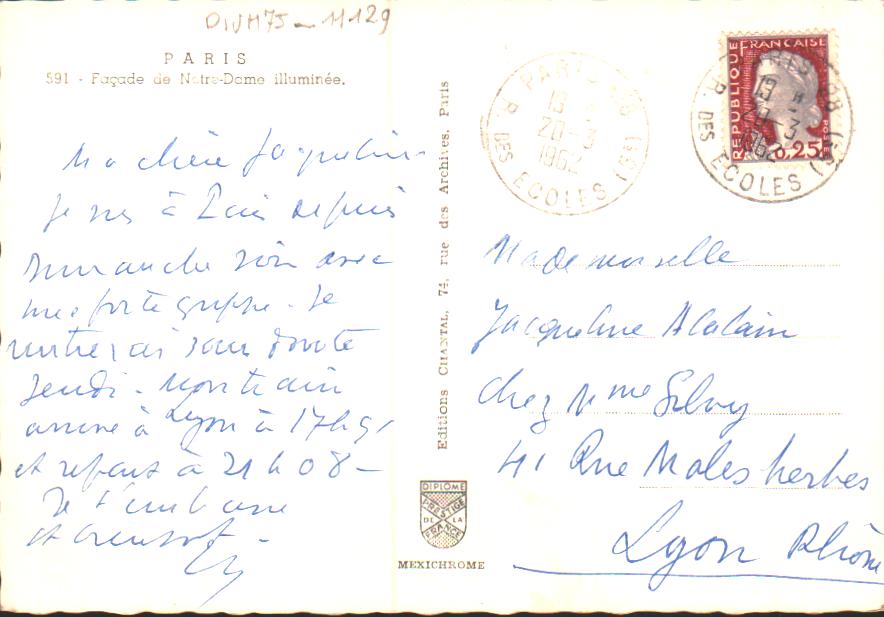 DIVM75-11129
PARIS
591 - Façade de Notre-Dame illuminée.
Ma chère Jacqueline
Je suis à Paris depuis
Dimanche soir avec
une forte grippe - Je
rentrerai sans doute
Jeudi - Mon train
arrive à Lyon à 17h51
et repart à 21h08 -
Je t'embrasse
et
Editions CHANTAL, 74, rue des Archives, Paris
DIPLOME
PRESTIGE
DE LA
FRANCE
MEXICHROME
PARIS 68
13
20-3
1962
R. DES ECOLES (5e)
REPUBLIQUE FRANCAISE
POSTES
0,25
PARIS 68
13
20-3
1962
R. DES ECOLES (5e)
Mademoiselle
Jacqueline
chez Mme
41 Rue Malesherbes
Lyon Rhône